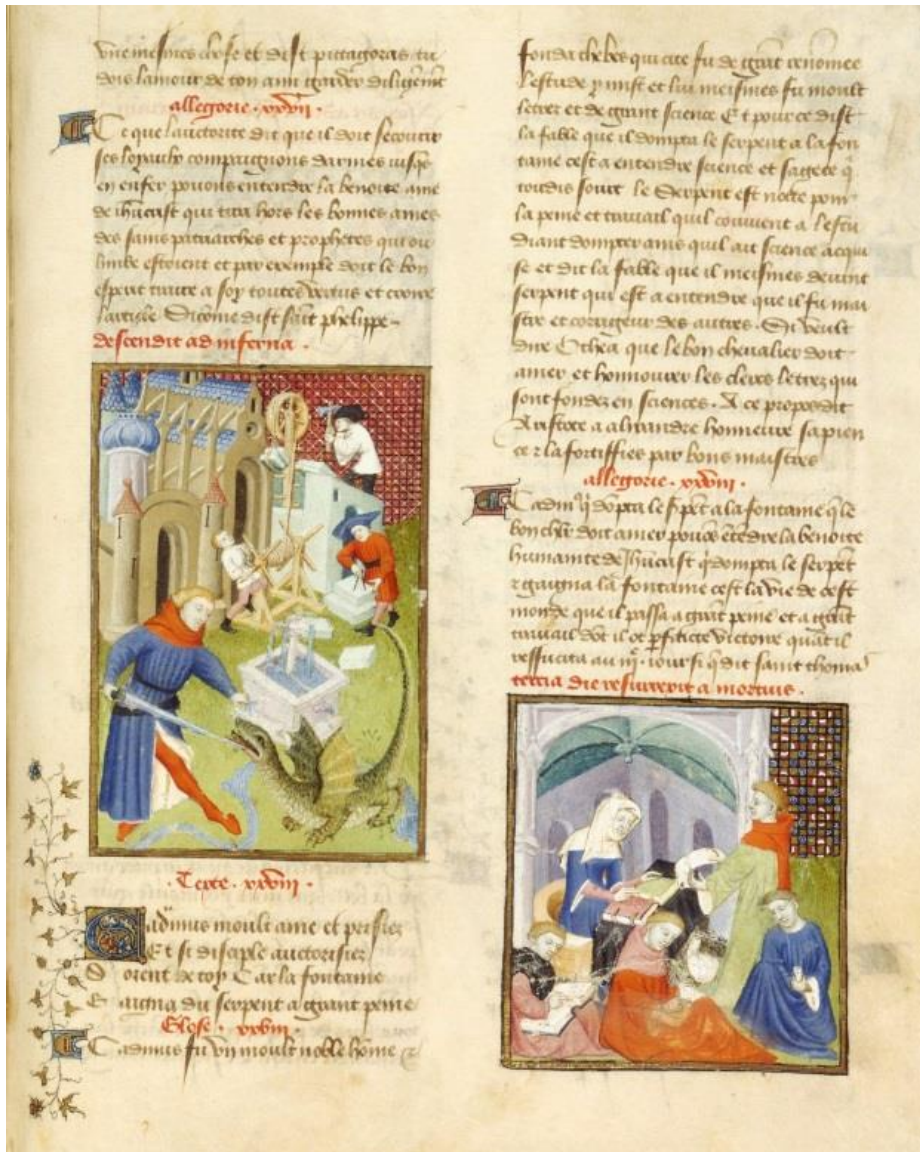 une mesmes chose et dist pittagoras tu
dois lamour de ton ami garder diligēmt
allegorie · xxvii ·
Ce que lauctorite dit que il doit secourir
ses loyaulx compaignons darmes jusq̄s
en enfer pouons entendre la benoite ame
de ihūcrist qui tira hors les bonnes ames
des sains patriarches et prophetes qui ou
limbe estoient et par exemple doit le bon
esperit traire a soy toutes vertus et croire
larticle Sicōme dist saīt phelippe
descendit ad inferna ·
Texte · xxviii ·
Cadmus moult aime et prisiez
Et si disciple auctorisiez
Soient de toy Car la fontaine
Gaigna du serpent a grant peine
Glose · xxviii ·
Cadmus fu un moult noble hōme et
fonda thebes qui cite fu de grāt renomee
lestude y mist et lui meismes fu moult
letrez et de grant science Et pour ce dist
la fable que il dompta le serpent a la fon
taine cest a entendre science et sagece q̄
toudis sourt le Serpent est notte pour
la peine et travail quil couvient a lestu
diant dompter ains quil ait science acqui
se et dit la fable que il meismes devint
serpent qui est a entendre que il fu mai
stre et corrigeur des autres · Si veult
dire Othea que le bon chevalier doit
amer et honnourer les clers letrez qui
sont fondez en sciences · A ce propos dit
Aristote a alixandre honneure sapien
ce et la fortiffies par bons maistres
allegorie · xxviii ·
Cadm9 q̄ dōpta le s̄pēt a la fontaine q̄ le
bon chlr doit amer pouōs ētēdre la benoite
humanite de Jhūcrist q̄ dompta le serpēt
et gaigna la fontaine cest la vie de cest
monde que il passa a grāt peine et a grāt
travail dōt il ot p̄faicte victoire quāt il
ressucita au iijͤ · jour si q̄ dit saint thomas
tercia die resurrexit a mortuis ·